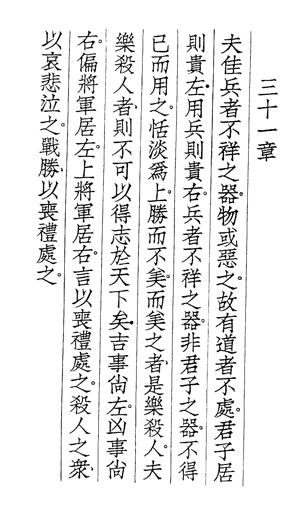 三十一章
夫佳兵者不祥之器。物或惡之。故有道者不處。君子居
則貴左。用兵則貴右。兵者不祥之器。非君子之器。不得
已而用之。恬淡爲上。勝而不美。而美之者、是樂殺人。夫
樂殺人者、則不可以得志於天下矣。吉事尙左。凶事尙
右。偏將軍居左。上將軍居右。言以喪禮處之。殺人之衆、
以哀悲泣之。戰勝、以喪禮處之。